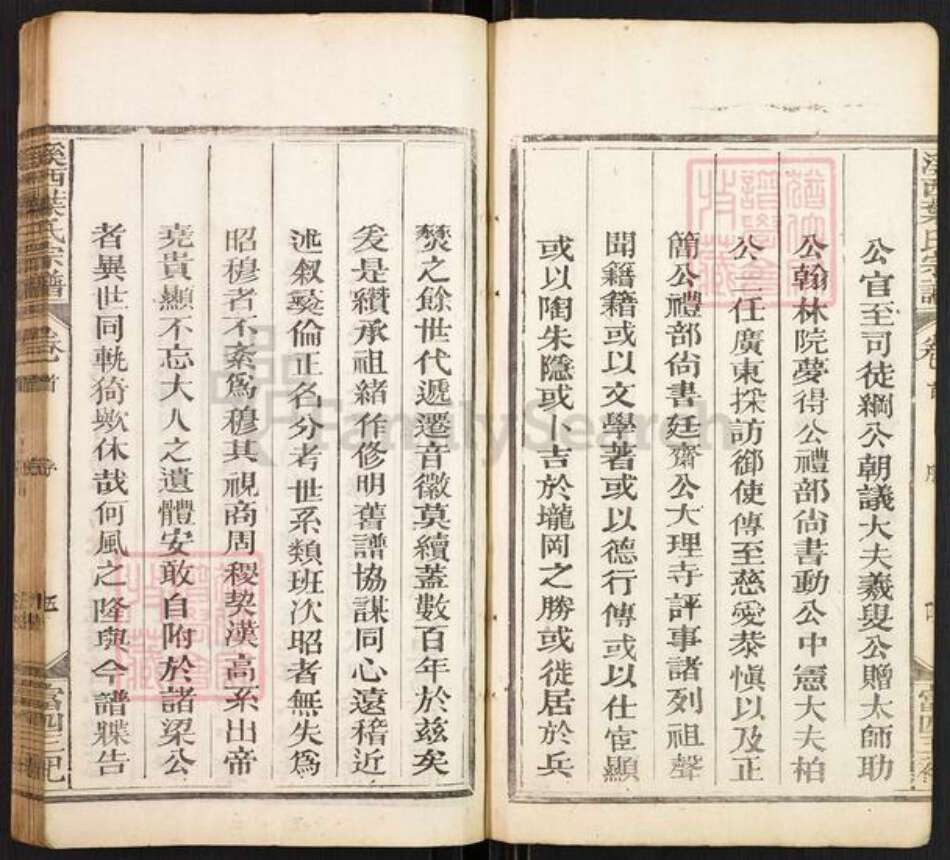 公官至司徒綱公朝議大夫義叟公贈太師助
公翰林院夢得公禮部尚書動公中憲大夫柏
公一任廣東採訪御使傳至慈愛恭愼以及正
簡公禮部尚書廷齋公大理寺評事諸列祖聲
聞籍籍或以文學著或以德行傳或以仕宦顯
或以陶朱隱或卜吉於壠岡之勝或徙居於兵
燹之餘世代遞遷音徽莫續蓋數百年於茲矣
爰是纘承祖緒作修明舊譜協謀同心遠稽近
述叙彜倫正名分考世系類班次昭者無失爲
昭穆者不紊爲穆其視商周稷契漢高系出帝
堯貴顯不忘大人之遺體安敢自附於諸梁公
者異世同軌猗歟休哉何風之隆與今譜牒告
溪西葉氏宗譜
卷首
序
五
FamilySearch